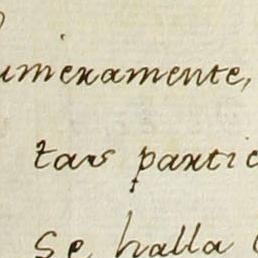 umeramente,
tar partic
se halla